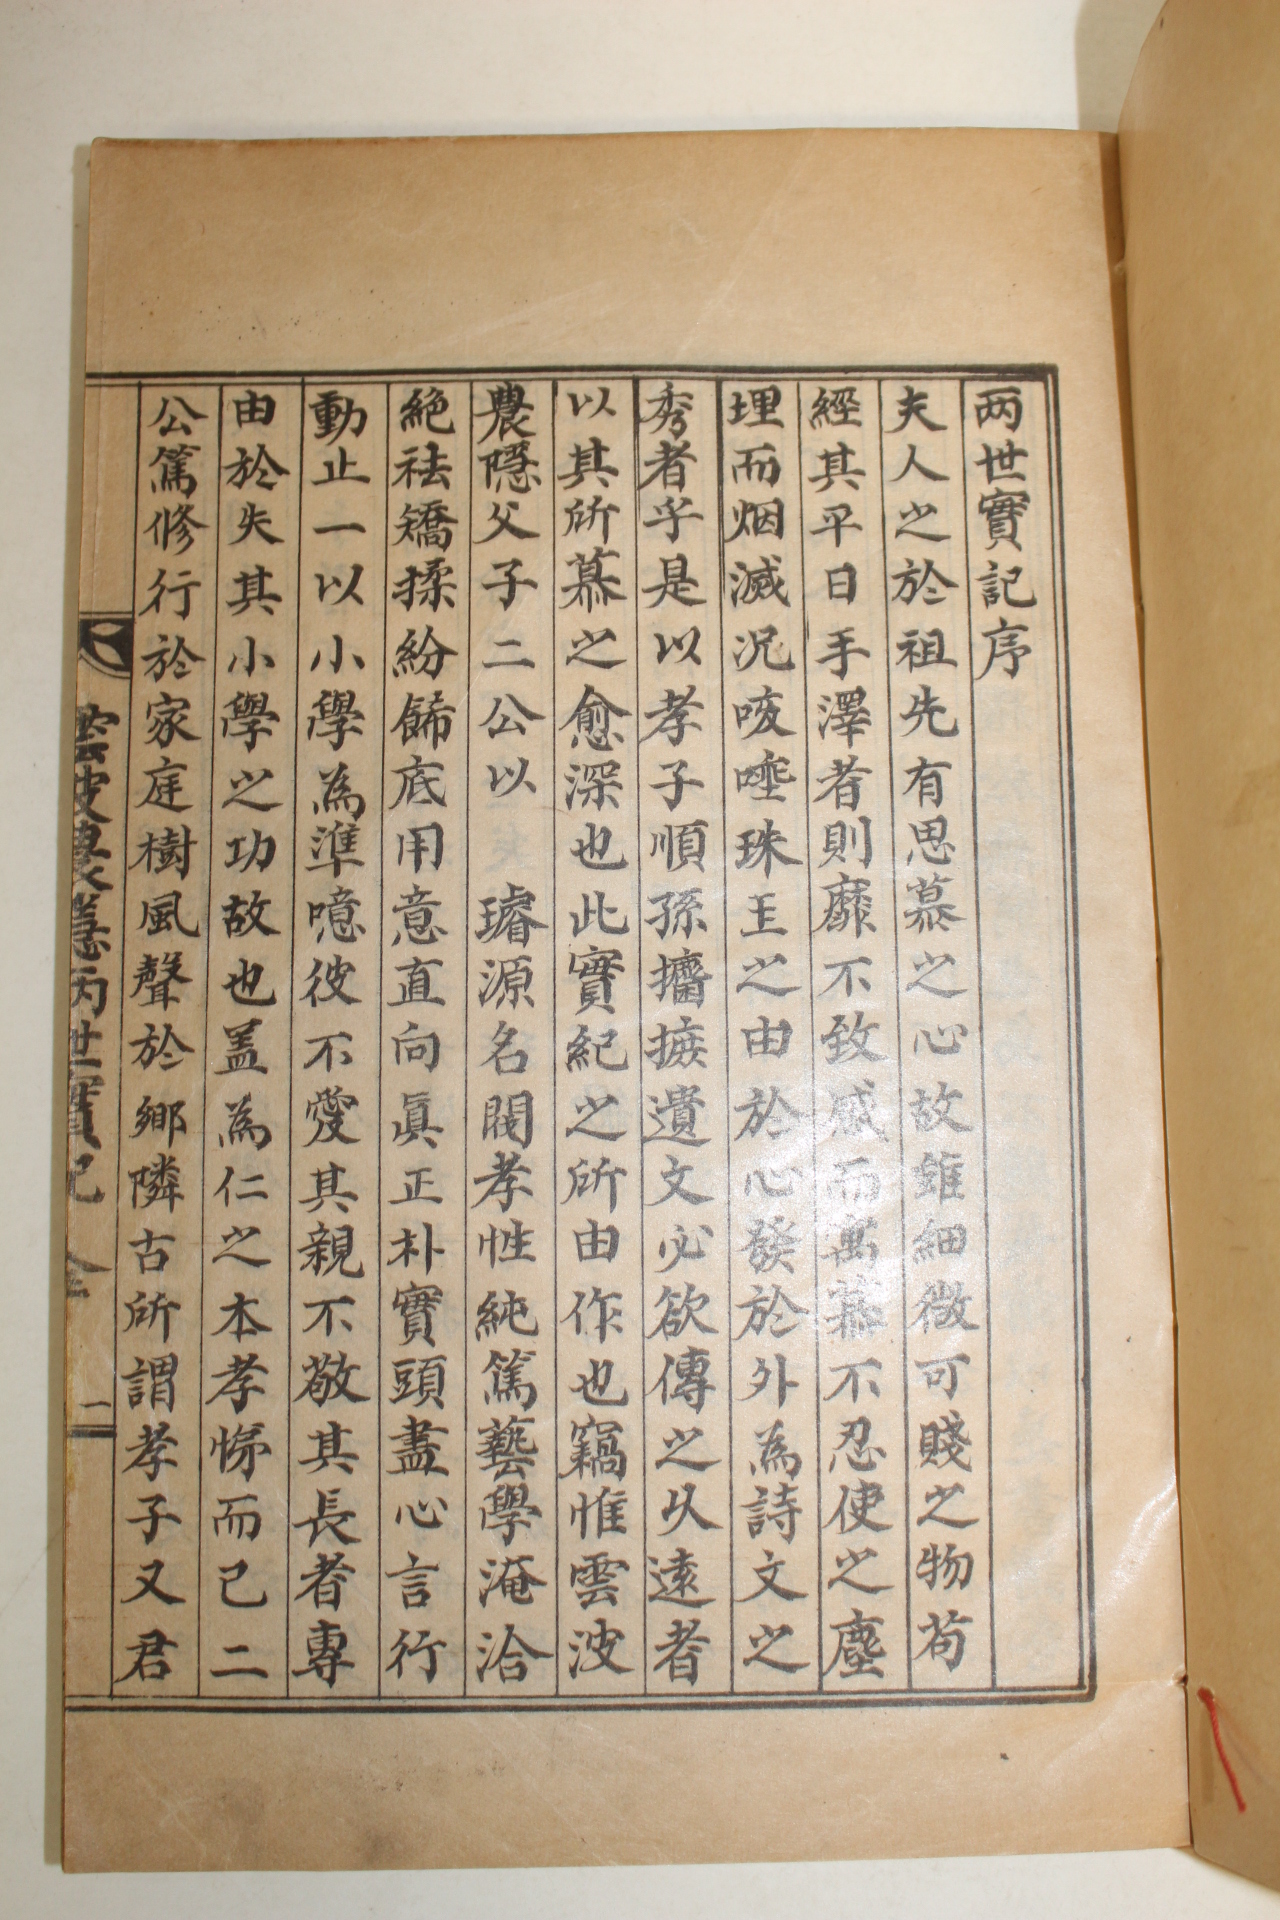 两世實記序
夫人之於祖先有思慕之心故雖細微可賤之物苟
經其平日手澤者則靡不致感而寓慕不忍使之塵
埋而烟滅況咳唾珠玉之由於心發於外為詩文之
秀者乎是以孝子順孫攟摭遺文必欲傳之以遠者
以其所慕之愈深也此實紀之所由作也竊惟雲波
農隱父子二公以 璿源名閥孝性純篤藝學淹洽
絶袪矯揉紛餙底用意直向眞正朴實頭盡心言行
動止一以小學為準噫彼不愛其親不敬其長者專
由於失其小學之功故也盖為仁之本孝悌而已二
公篤修行於家庭樹風聲於鄉隣古所謂孝子又君
雲波農隱两世實記 全 一